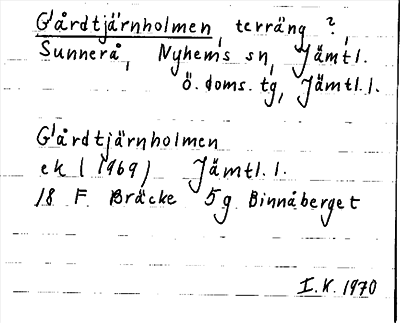 Gårdtjärnholmen, terräng?,
Sunnerå, Nyhems sn, Jämtl.
ö. doms. tg, Jämtl. l.
Gårdtjärnholmen
ek (1969) Jämtl. l.
18 F Bräcke 5g Binnåberget
I.K. 1970